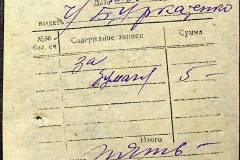 выдать У Б Чукаченко
№№ бал. сч Содержание записи Сумма
за
бумагу 5-
Итого
пять-